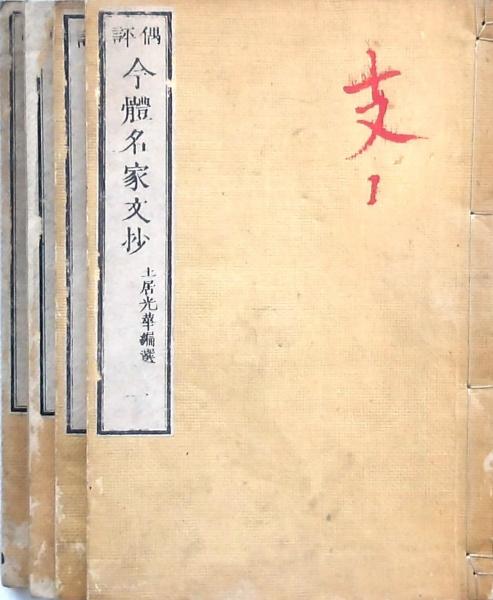 偶評
今體名家文抄
土居光華編選
一
支
1
評